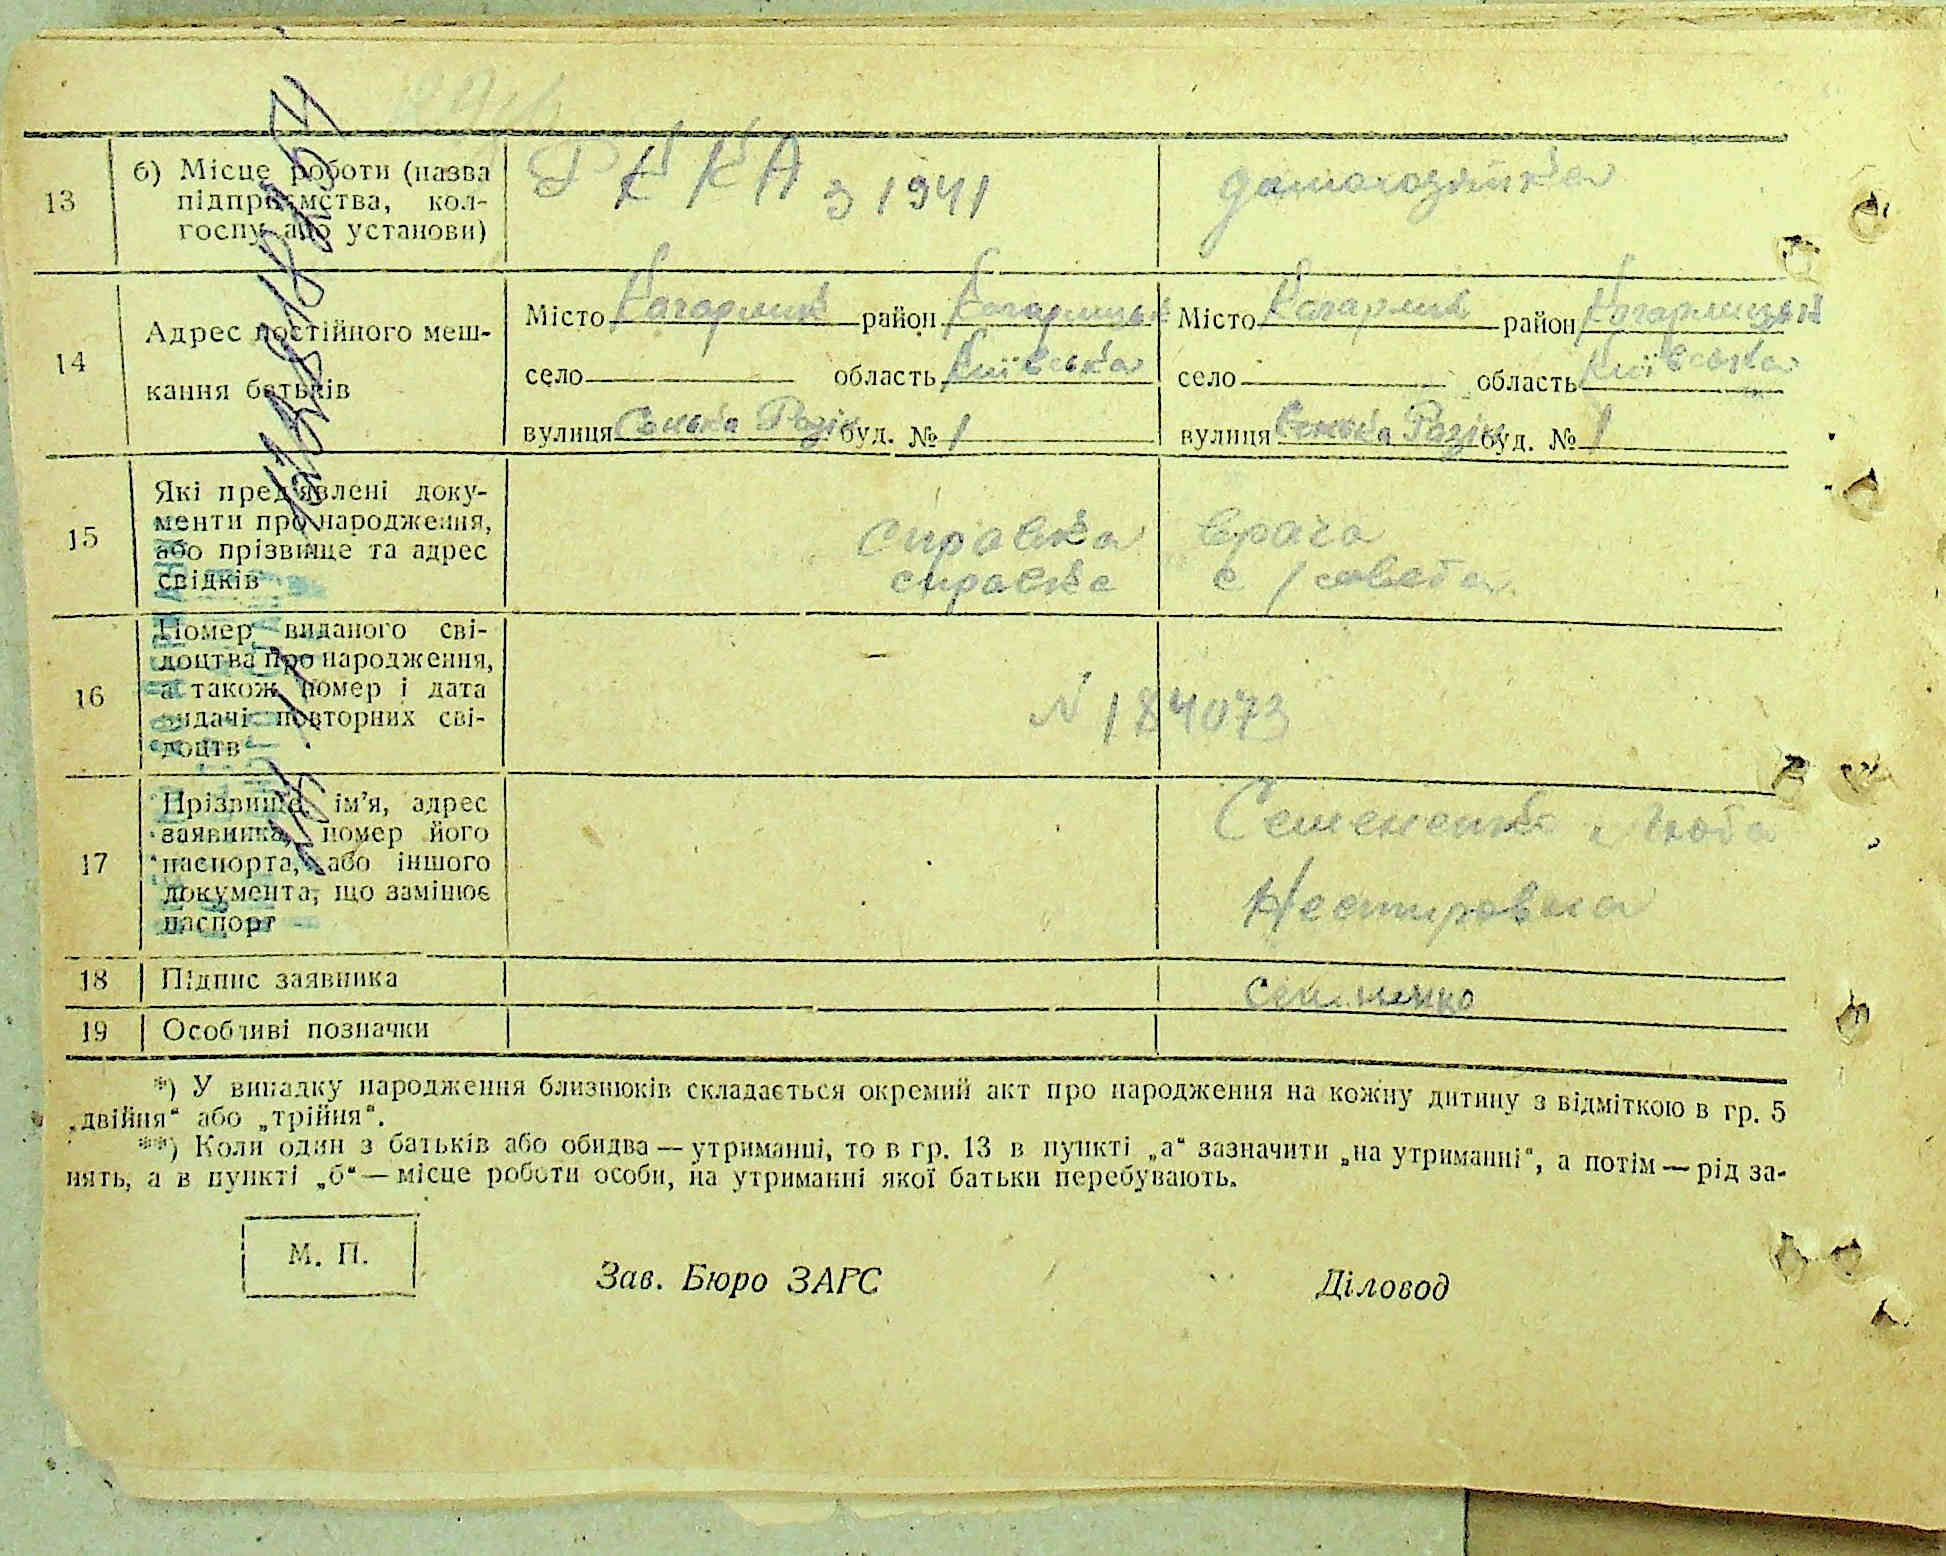 13
б) Місце роботи (назва
підприємства, кол-
госпу або установи)
РККА з 1941
домохозяйка
14
Адрес постійного меш-
кання батьків
Місто Кагарлик район Кагарлицьк
село область Київська
вулиця Сенька Разін буд. № 1
Місто Кагарлик район Кагарлицьк
село область Київська
вулиця Сенька Разін буд. № 1
15
Які пред'явлені доку-
менти про народження,
або прізвище та адрес
свідків
справка врача
справка с/совета
16
Номер виданого сві-
доцтва про народження,
а також номер і дата
видачі повторних сві-
доцтв
N 184073
17
Прізвище, ім'я, адрес
заявника, номер його
паспорта, або іншого
документа, що замінює
паспорт
Семененко Люба
Нестировна
18 Підпис заявника
19 Особливі позначки
*) У випадку народження близнюків складається окремий акт про народження на кожну дитину з відміткою в гр. 5
„двійня“ або „трійня“.
**) Коли один з батьків або обидва — утриманці, то в гр. 13 в пункті „а“ зазначити „на утриманні“, а потім — рід за-
нять, а в пункті „б“ — місце роботи особи, на утриманні якої батьки перебувають.
М. П.
Зав. Бюро ЗАГС
Діловод